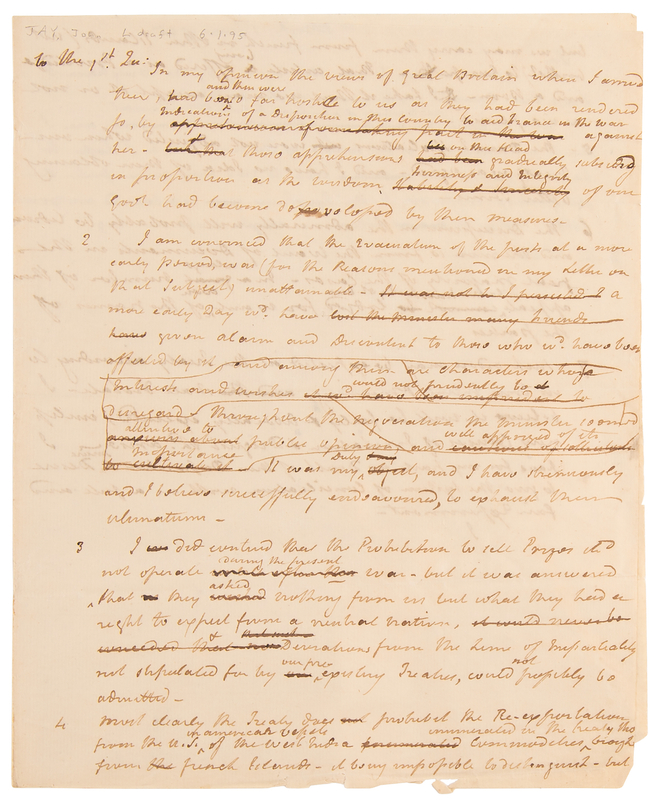 JAY, Jo draft 6.1.95
to the 1st Qu:
In my opinion the views of Great Britain when I arrived
and then were
there, had been so far hostile to us as they had been rendered
Indications of a Disposition in this country to aid France in the war
so, by apprehensions of our taking part in the war against
on this Head
her - but that those apprehensions had been gradually subsided
firmness and Integrity
in proportion as the wisdom of our
Govt had become developed by their measures -
2 I am convinced that the Evacuation of the posts at a more
early Period, was (for the Reasons mentioned in my Letter on
that Subject) unattainable - It was not to I persisted I a
more early Day wd. have lost the minister many Friends
have given alarm and Discontent to those who wd. have been
affected by it and among them are characters whose
would not prudently be
Interests and wishes it wd. have been imprudent to
disregard - Throughout the negociation the minister seemed
attentive to well apprized of its
anxious about public opinion and
Importance Duty
to cultivate it - It was my object, and I have strenuously
and I believe successfully endeavoured, to exhaust their
ultimatum -
3 I did contend that the Prohibition to sell Prizes shd
during the present
not operate war - but it was answered
asked
that they wanted nothing from us but what they had a
right to expect from a neutral nation, it would never be
conceded that Deviations from the Line of Impartiality
our pre not
not stipulated for by existing Treaties, could possibly be
admitted -
4 most clearly the Treaty does not prohibit the Re-exportation
in american vessels enumerated in the Treaty tho
from the U.S. of the West India enumerated Commodities, brought
from the french Islands - it being impossible to distinguish - but